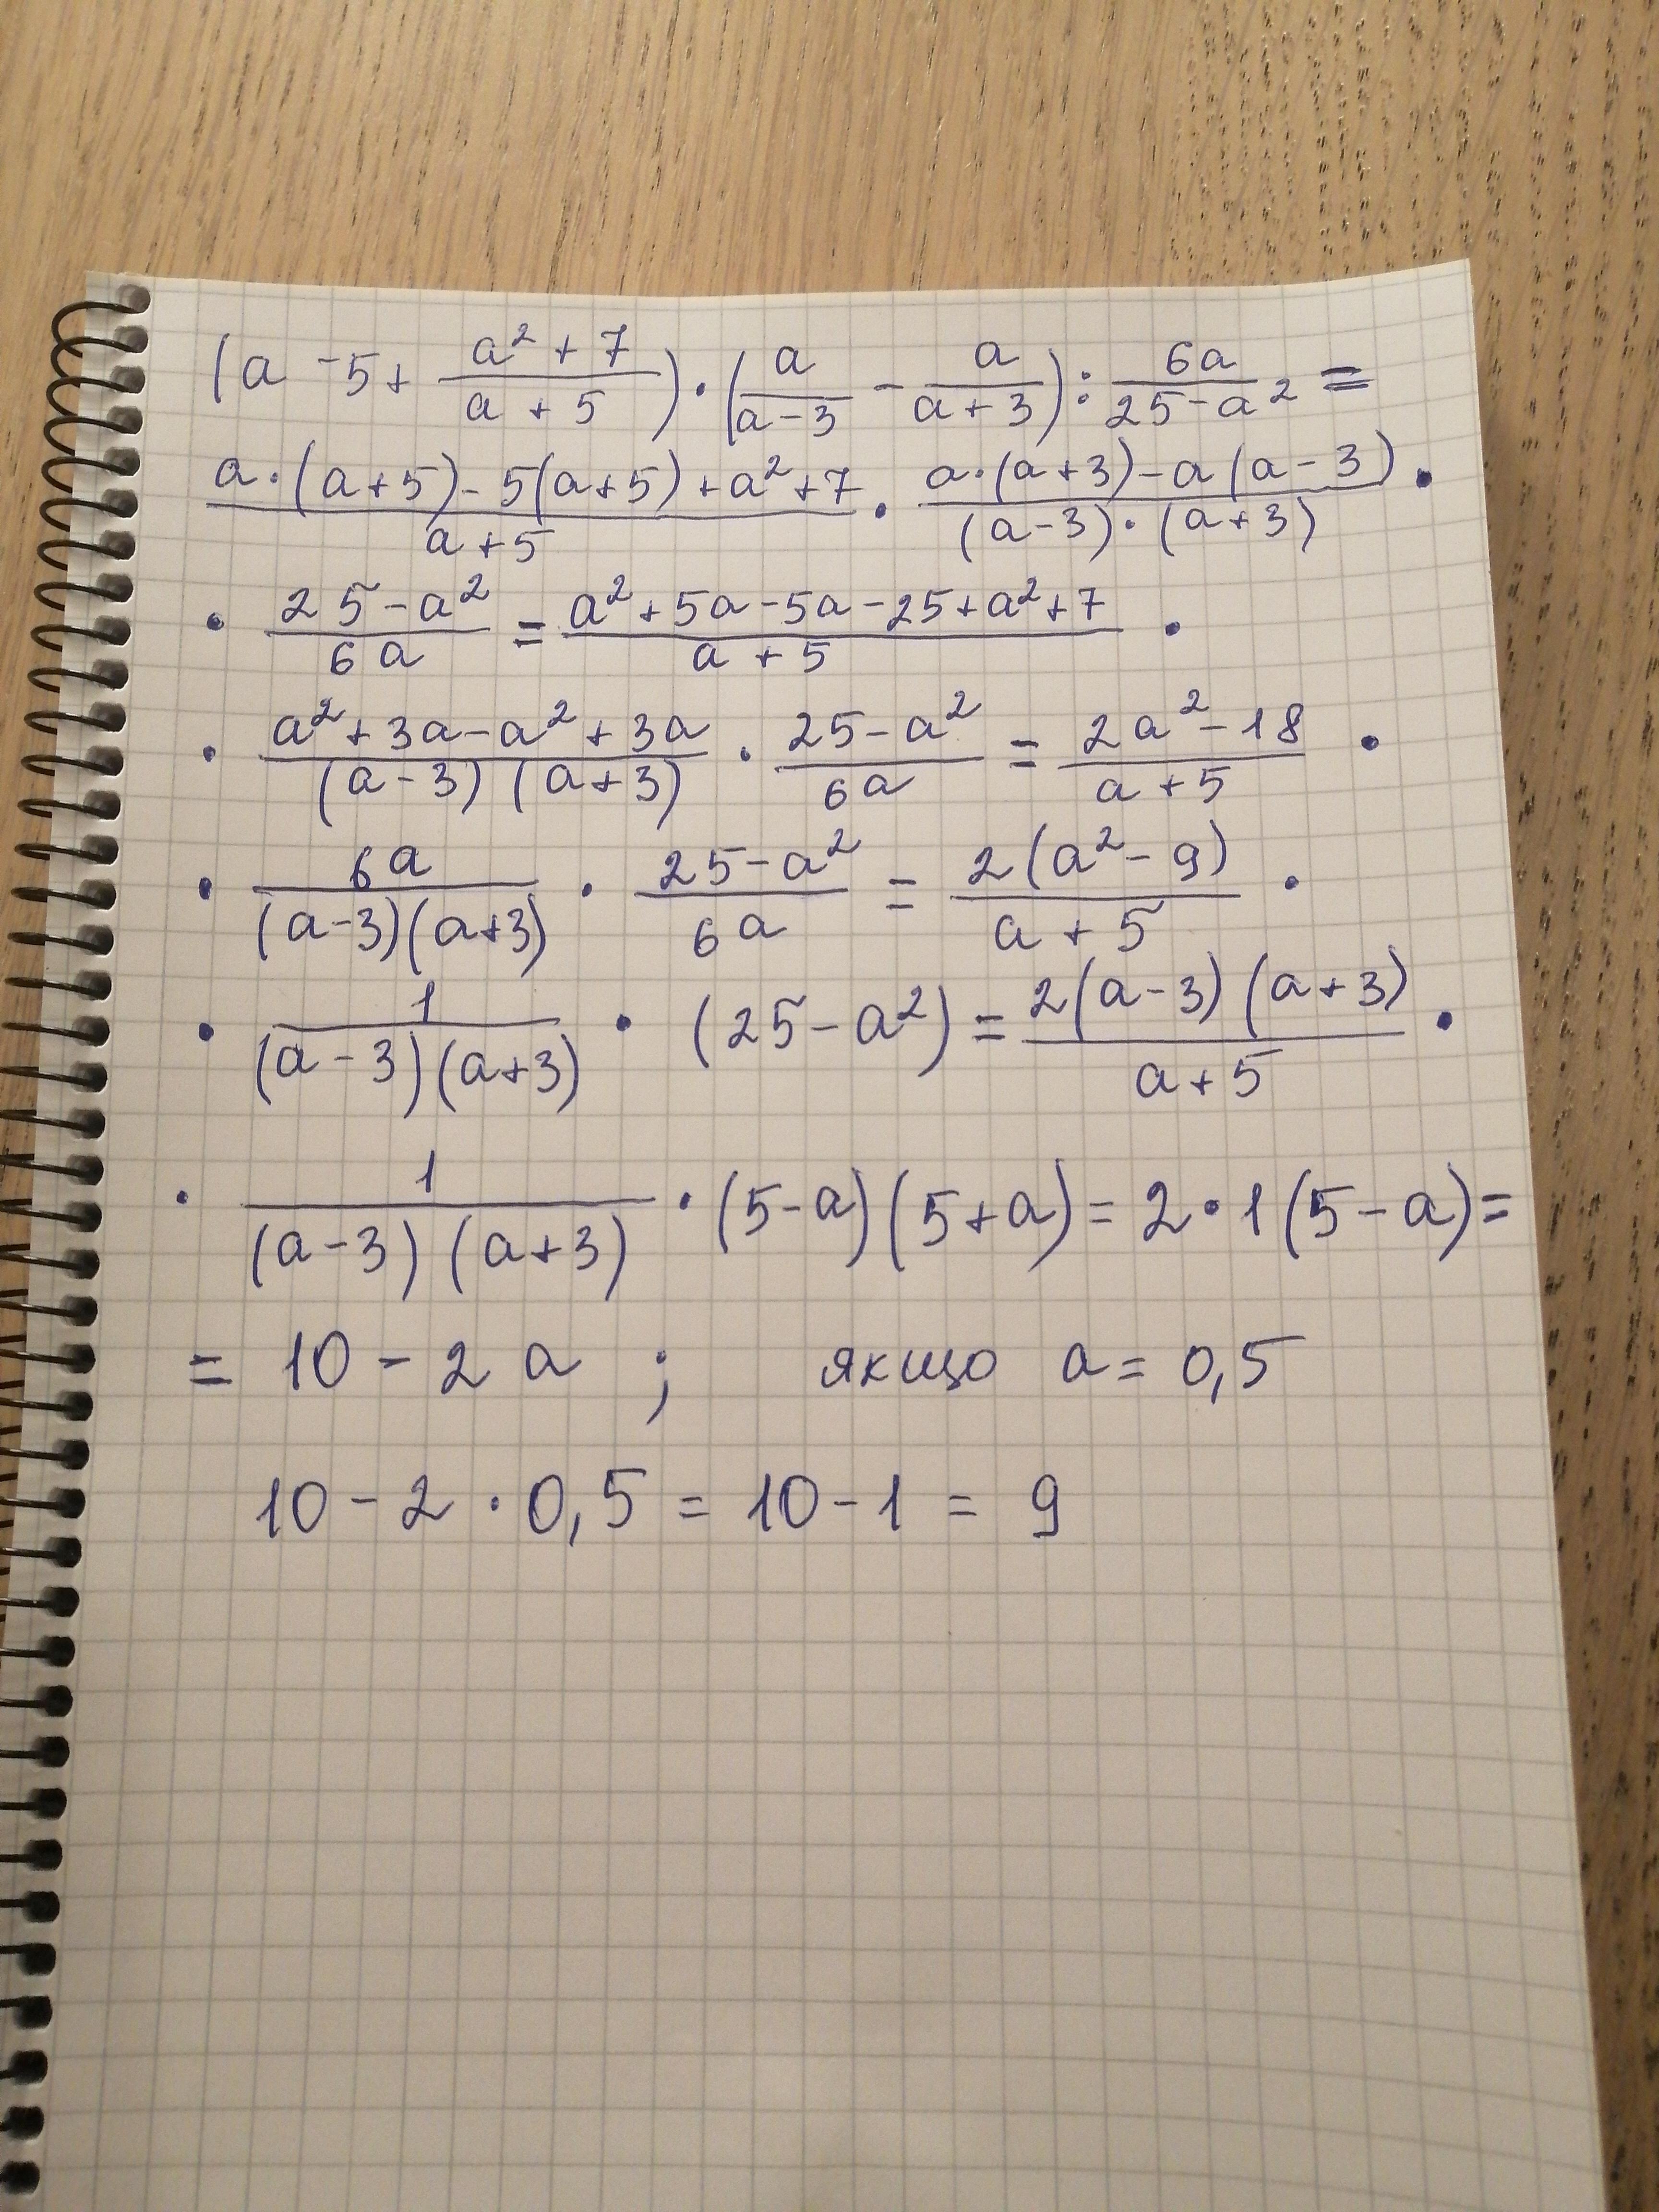 (a - 5 + \frac{a^2 + 7}{a + 5}) · (\frac{a}{a - 3} - \frac{a}{a + 3}) : \frac{6a}{25 - a^2} =
\frac{a · (a + 5) - 5(a + 5) + a^2 + 7}{a + 5} · \frac{a · (a + 3) - a(a - 3)}{(a - 3) · (a + 3)} ·
· \frac{25 - a^2}{6a} = \frac{a^2 + 5a - 5a - 25 + a^2 + 7}{a + 5} ·
· \frac{a^2 + 3a - a^2 + 3a}{(a - 3)(a + 3)} · \frac{25 - a^2}{6a} = \frac{2a^2 - 18}{a + 5} ·
· \frac{6a}{(a - 3)(a + 3)} · \frac{25 - a^2}{6a} = \frac{2(a^2 - 9)}{a + 5} ·
· \frac{1}{(a - 3)(a + 3)} · (25 - a^2) = \frac{2(a - 3)(a + 3)}{a + 5} ·
· \frac{1}{(a - 3)(a + 3)} · (5 - a)(5 + a) = 2 · 1(5 - a) =
= 10 - 2a ; якщо a = 0,5
10 - 2 · 0,5 = 10 - 1 = 9